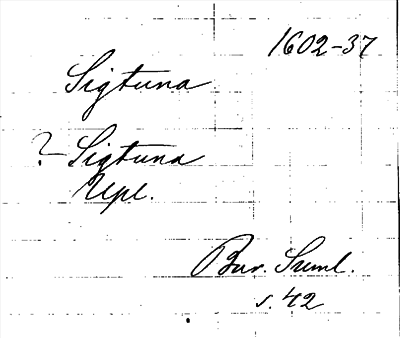 1602-37
Sigtuna
? Sigtuna
Upl.
Bur. Suml.
s. 42